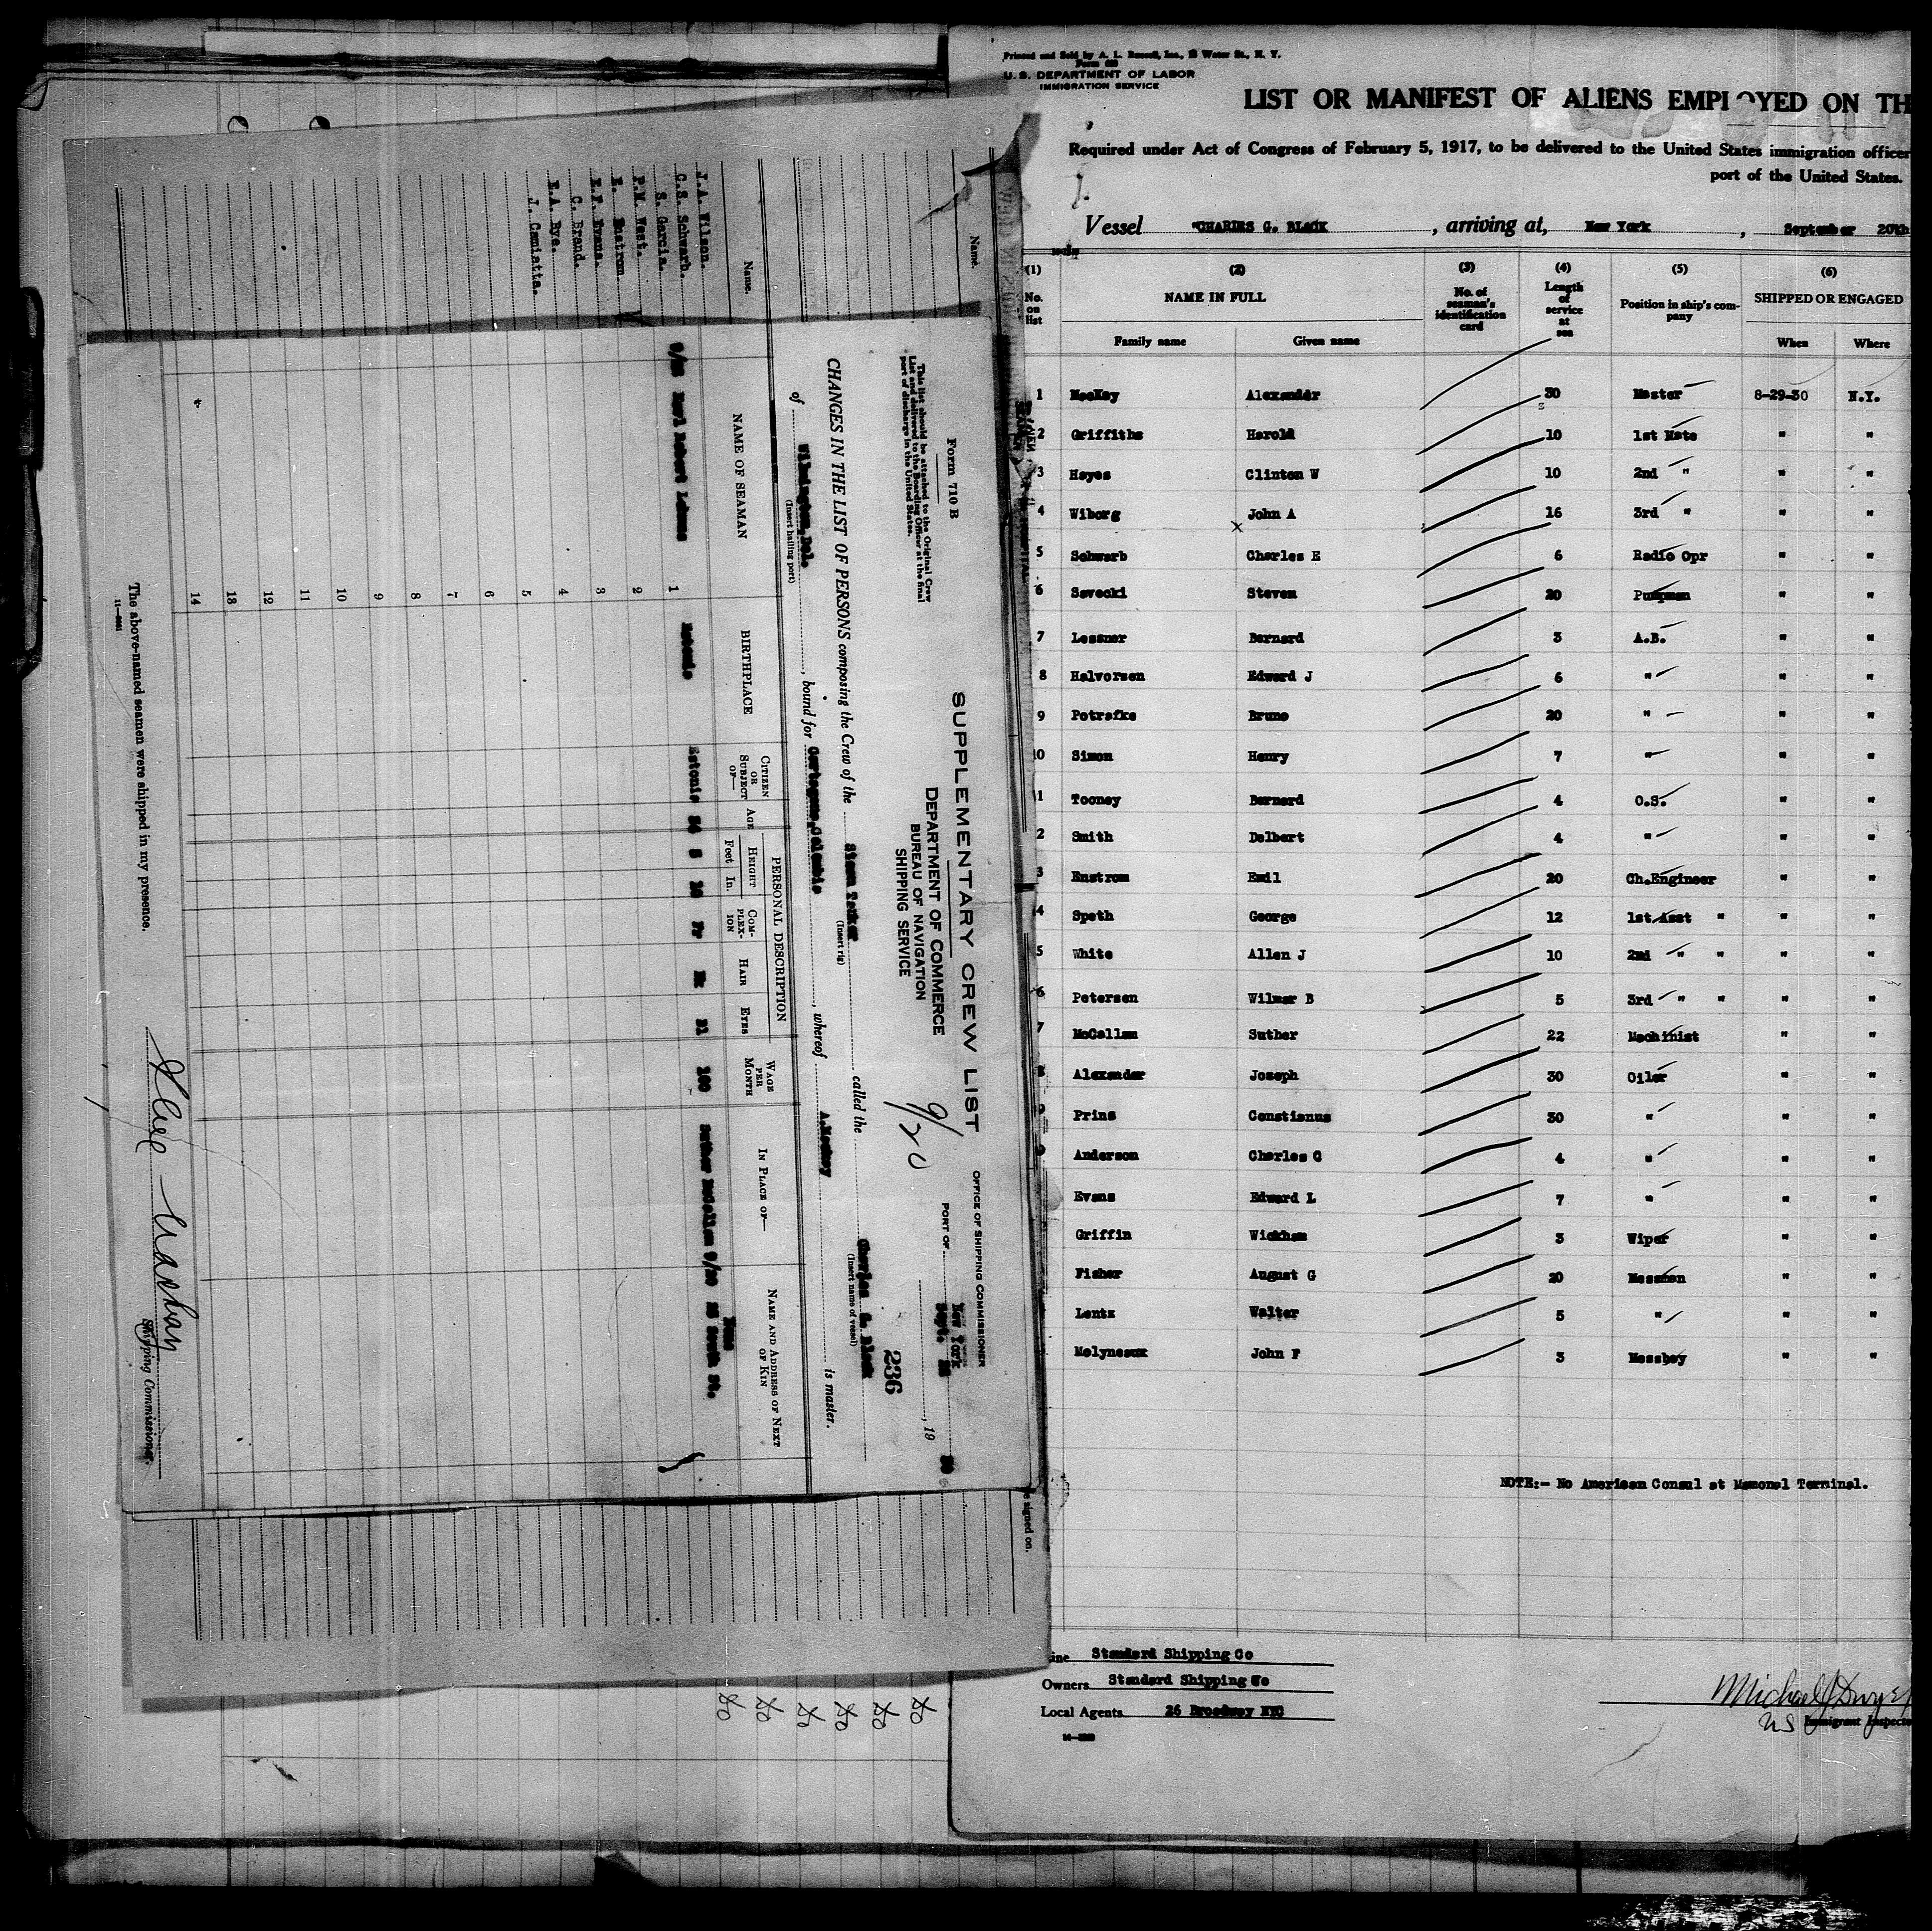 Printed and Sold by A. L. Russell, Inc., Water St., N. Y.
U. S. DEPARTMENT OF LABOR
IMMIGRATION SERVICE
LIST OR MANIFEST OF ALIENS EMPLOYED ON TH
Required under Act of Congress of February 5, 1917, to be delivered to the United States immigration officer
port of the United States.
Vessel "CHARLES G. BLACK , arriving at, New York , September 20th
(1) (2) (3) (4) (5) (6)
No. on list NAME IN FULL No. of seaman's identification card Length of service at sea Position in ship's company SHIPPED OR ENGAGED
Family name Given name When Where
1 MacKay Alexander 30 Master 8-29-30 N.Y.
2 Griffiths Harold 10 1st Mate " "
3 Hayes Clinton W 10 2nd " " "
4 Wiborg John A 16 3rd " " "
5 Schwarb Charles E 6 Radio Opr " "
6 Savecki Steven 20 Pumpman " "
7 Lessner Bernard 3 A.B. " "
8 Halvorsen Edward J 6 " " "
9 Potrafke Bruno 20 " " "
10 Simon Henry 7 " " "
1 Tooney Bernard 4 O.S. " "
2 Smith Delbert 4 " " "
3 Enstrom Emil 20 Ch.Engineer " "
4 Speth George 12 1st Asst " " "
5 White Allen J 10 2nd " " " "
6 Petersen Wilmer B 5 3rd " " " "
7 McCallum Suther 22 Machinist " "
Alexander Joseph 30 Oiler " "
Prins Constianus 30 " " "
Anderson Charles C 4 " " "
Evans Edward L 7 " " "
Griffin Wickham 3 Wiper " "
Fisher August G 20 Messman " "
Lentz Walter 5 " " "
Molyneaux John F 3 Messboy " "
NOTE:- No American Consul at Mamonal Terminal.
ine Standard Shipping Co
Owners Standard Shipping Co
Local Agents 26 Broadway NYC
Michael J Dwyer
US Immigrant Inspecto
Form 710 B
This list should be attached to the Original Crew
List and delivered to the Boarding Officer at the final
port of discharge in the United States.
SUPPLEMENTARY CREW LIST
DEPARTMENT OF COMMERCE
BUREAU OF NAVIGATION
SHIPPING SERVICE
9/20
OFFICE OF SHIPPING COMMISSIONER
PORT OF New York
Sept. , 19 30
236
CHANGES IN THE LIST OF PERSONS composing the Crew of the Steam Tanker called the Charles G. Black
(Insert rig) (Insert name of vessel)
of Wilmington, Del. , bound for Cartagena, Colombia , whereof A. Mackay is master.
(Insert hailing port)
NAME OF SEAMAN BIRTHPLACE CITIZEN OR SUBJECT OF— AGE PERSONAL DESCRIPTION WAGE PER MONTH IN PLACE OF— NAME AND ADDRESS OF NEXT OF KIN
HEIGHT Feet In. COMPLEXION HAIR EYES
1 Robert Estonia Estonia 5 Bl 100 Suther McCallum 9/20 25 South St.
2
3
4
5
6
7
8
9
10
11
12
13
14
The above-named seamen were shipped in my presence.
Shipping Commissioner.
Name.
Name.
J.A. Wilson.
C.S. Schwarb.
S. Garcia.
P.M. West.
E. Enstrom.
E.F. Evans.
C. Brand.
E.A. Bye.
J. Camiatta.
signed on.